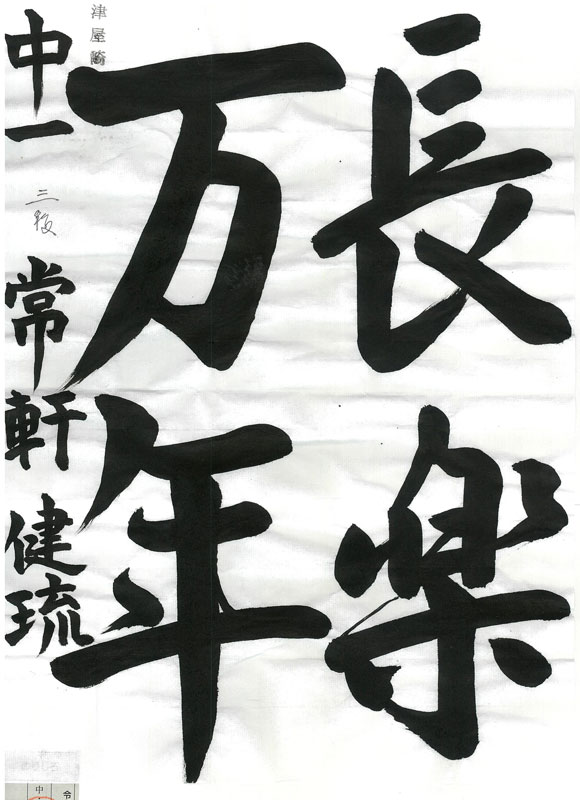 長楽
万年
津屋崎
中一
三段
常軒健琉
中
令